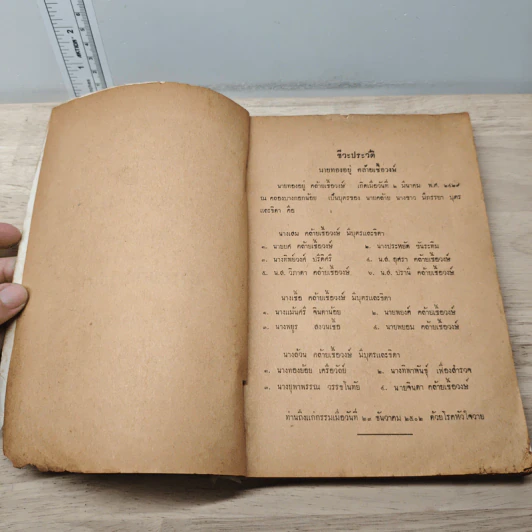 ชีวะประวัติ
นายทองอยู่ คล้ายเชื้อวงษ์
นายทองอยู่ คล้ายเชื้อวงษ์ เกิดเมื่อวันที่ ๒ มีนาคม พ.ศ. ๒๔๒๙
ณ คลองบางกอกน้อย เป็นบุตรของ นายคล้าย นางขาว มีภรรยา บุตร
และธิดา คือ
นางเสม คล้ายเชื้อวงษ์ มีบุตรและธิดา
๑. นายยศ คล้ายเชื้อวงษ์ ๒. นางประหยัด ขันระทิม
๓. นางทิพย์วงศ์ ปรีดีศรี ๔. น.ส. ยุศรา คล้ายเชื้อวงษ์
๕. น.ส. วิภาดา คล้ายเชื้อวงษ์ ๖. น.ส. ปรานี คล้ายเชื้อวงษ์
นางเชื้อ คล้ายเชื้อวงษ์ มีบุตรและธิดา
๑. นางแม้นศรี จินดาน้อย ๒. นายพยงค์ คล้ายเชื้อวงษ์
๓. นางพยูร สงวนเชื้อ ๔. นายพยอม คล้ายเชื้อวงษ์
นางอ้วน คล้ายเชื้อวงษ์ มีบุตรและธิดา
๑. นางทองย้อย เครือวัลย์ ๒. นางทิพาพันธุ์ เฟื่องสำรวจ
๓. นางยุพาพรรณ วรรธโนทัย ๔. นายจินดา คล้ายเชื้อวงษ์
ท่านถึงแก่กรรมเมื่อวันที่ ๒๙ ธันวาคม ๒๕๐๒ ด้วยโรคหัวใจวาย